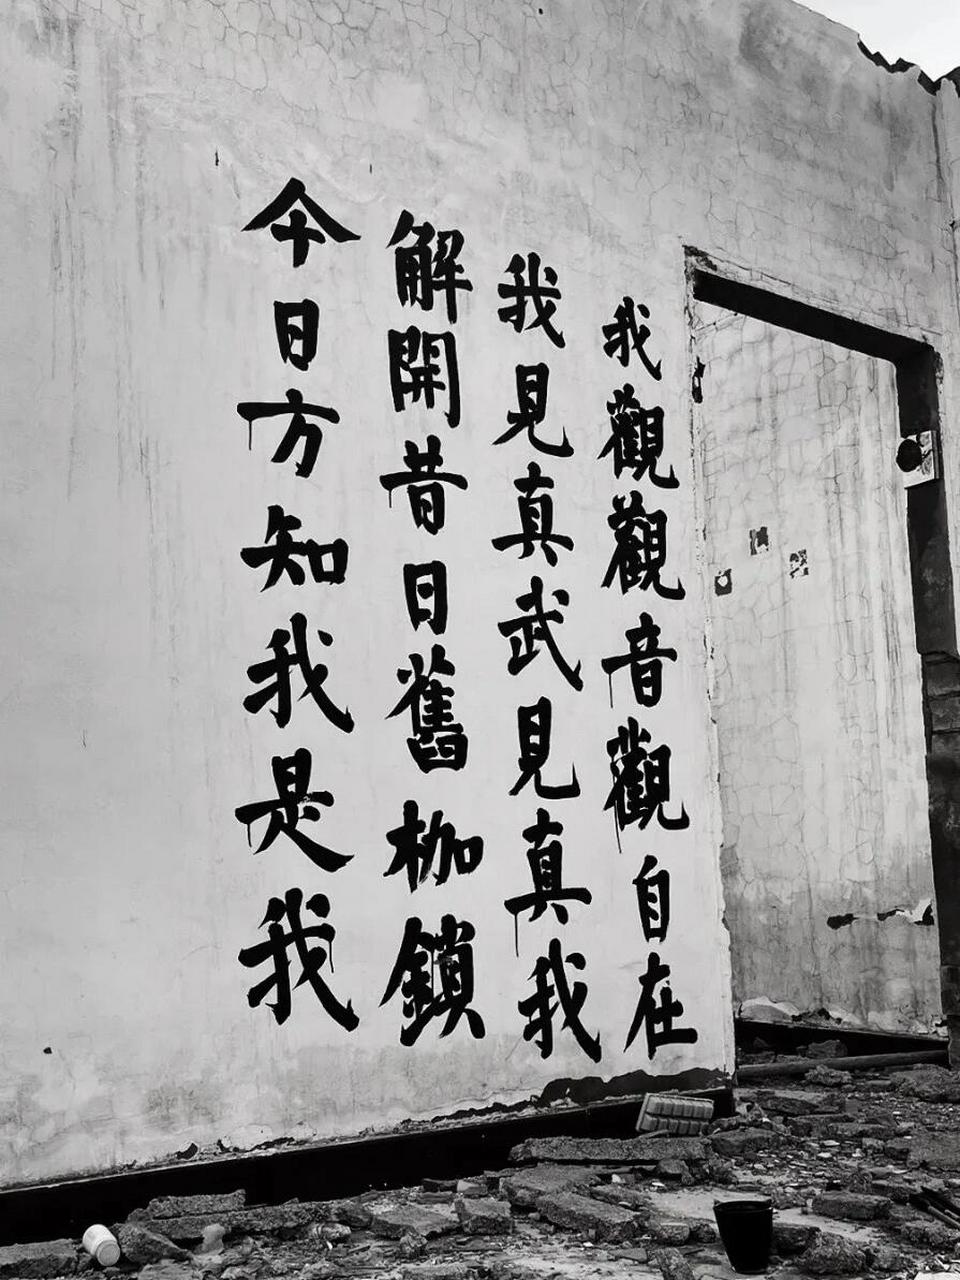 我觀觀音觀自在
我見真武見真我
解開昔日舊枷鎖
今日方知我是我